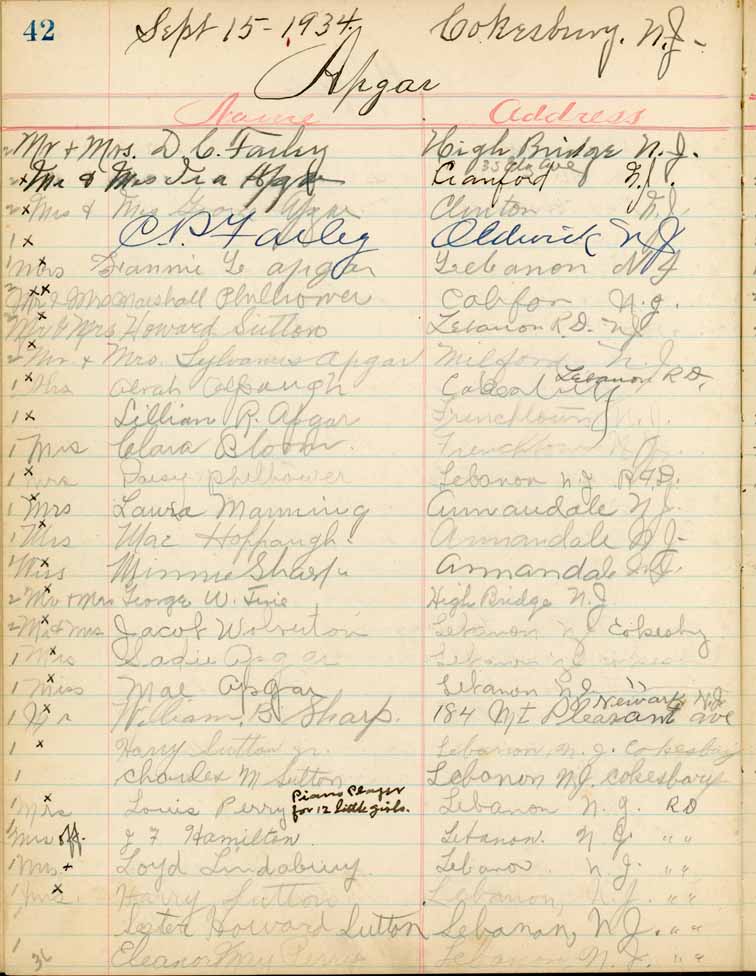 42 Sept 15-1934. Cokesbury. N.J-
Apgar
Name Address
2 Mr + Mrs. D. C. Farley High Bridge N.J.
35 Elm Ave
2 x Mr & Mrs Ira Apgar Cranford N.J.
2 x Mrs & Apgar Clinton N.J
1 x C.P. Farley Oldwick N J
1 Mrs Fannie L apgar Lebanon N J
2 xx Mr & Mrs Marshall Philhower Califon N.J.
2 x Mr & Mrs Howard Sutton Lebanon R.D. NJ
2 x Mr & Mrs. Sylvanus Apgar Milford N.J.
1 x Mrs Alpaugh Lebanon R.D.
1 x Lillian R. Apgar Frenchtown N.J.
1 Mrs Clara Bloom. Frenchtown N.J.
1 x Mrs Daisy Philhower Lebanon N J R.F.D.
1 x Mrs Laura Manning Annandale N.J.
1 x Mrs Mae Hoffaugh. Annandale N J-
1 x Miss Minnie Sharp Annandale N.J.
2 x Mr + Mrs George W. High Bridge N.J
2 x Mr & Mrs Jacob Wolverton Lebanon NJ Cokesby
1 x Mrs Sadie Apgar Lebanon NJ
1 x Miss Mae Apgar Lebanon N.J. "
Newark N.J.
1 x William B. Sharp. 184 Mt Pleasant ave
1 x Harry Sutton jr. Lebanon, N.J. Cokesbury
1 Charles M Sutton Lebanon NJ. Cokesbury
Piano Player
1 x Mrs Louis Perry for 12 little girls. Lebanon N.J. RD
1 Mrs off. J F Hamilton. Lebanon. N J. " "
1 Mrs + Loyd Lindabury Lebanon N.J. " "
1 x Mrs. Harry Sutton Lebanon, N.J. " "
Lester Howard Sutton Lebanon, N.J. " "
1 36 Eleanor May Perry Lebanon N.J. " "